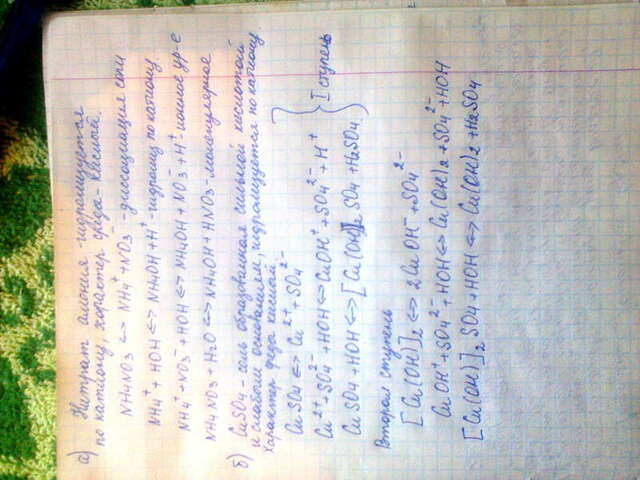 а) Нитрат амония гидролизуется
по катиону, характер среда - кислый.
NH4NO3 <=> NH4⁺ + NO3⁻ - диссоциация соли
NH4⁺ + HOH <=> NH4OH + H⁺ - гидролиз по катиону
NH4⁺ + NO3⁻ + HOH <=> NH4OH + NO3⁻ + H⁺ ионное ур-е
NH4NO3 + H2O <=> NH4OH + HNO3 - молекулярное
б) CuSO4 - соль образованная сильной кислотой
и слабым основанием, гидролизуется по катиону.
Характер среда кислый.
CuSO4 <=> Cu²⁺ + SO4²⁻
Cu²⁺ + SO4²⁻ + HOH <=> CuOH⁺ + SO4²⁻ + H⁺ } I ступень
CuSO4 + HOH <=> [Cu(OH)]2 SO4 + H2SO4
Вторая ступень
[Cu(OH)]2 <=> 2CuOH⁻ + SO4²⁻
CuOH⁺ + SO4²⁻ + HOH <=> Cu(OH)2 + SO4²⁻ + HOH
[Cu(OH)]2 SO4 + HOH <=> Cu(OH)2 + H2SO4